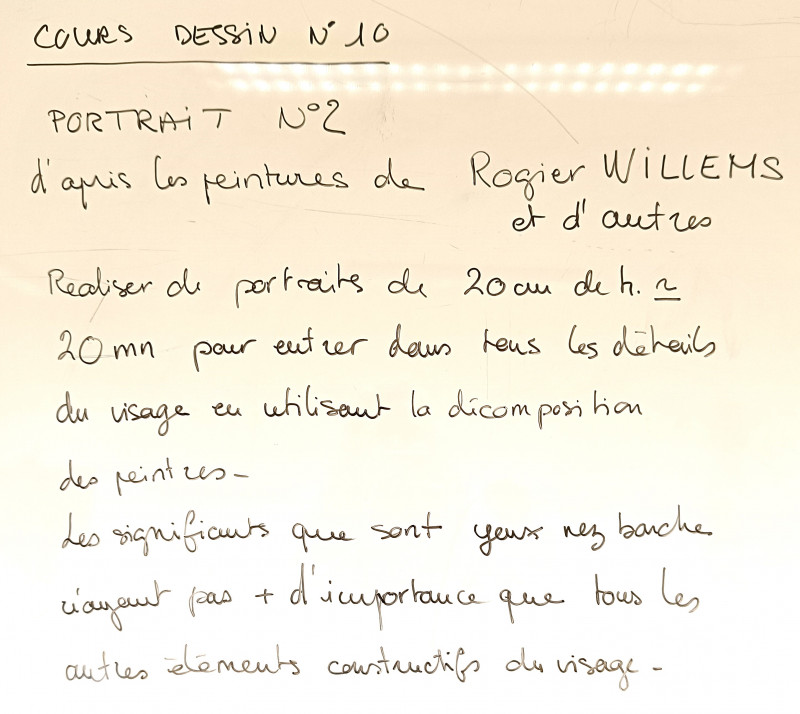 COURS DESSIN N°10
PORTRAIT N°2
d'après les peintures de Rogier WILLEMS
et d'autres
Réaliser de portraits de 20cm de h. ~
20mn pour entrer dans tous les détails
du visage en utilisant la décomposition
des peintres-
Les significants que sont yeux nez bouche
n'ayant pas + d'importance que tous les
autres éléments constructifs du visage-